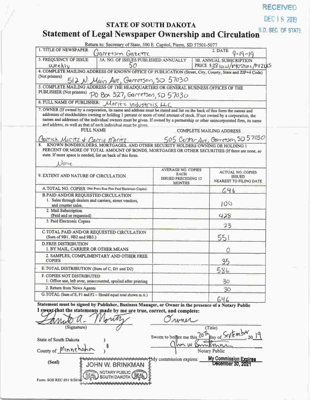 RECEIVED
DEC 16 2019
S.D. SEC. OF STATE
STATE OF SOUTH DAKOTA
Statement of Legal Newspaper Ownership and Circulation
Return to: Secretary of State, 500 E. Capitol, Pierre, SD 57501-5077
1. TITLE OF NEWSPAPER
Garretson Gazette
2. DATE
9-19-19
3. FREQUENCY OF ISSUE
Weekly
3A. NO. OF ISSUES PUBLISHED ANNUALLY
50
3B. ANNUAL SUBSCRIPTION
PRICE
4. COMPLETE MAILING ADDRESS OF KNOWN OFFICE OF PUBLICATION (Street, City, County, State and ZIP+4 Code)
(Not printers)
512 N Main Ave, Garretson, SD 57030
5. COMPLETE MAILING ADDRESS OF THE HEADQUARTERS OR GENERAL BUSINESS OFFICES OF THE
PUBLISHER (Not printers)
PO Box 327, Garretson, SD 57030
6. FULL NAME OF PUBLISHER:
Moritz Industries LLC
7. OWNER (If owned by a corporation, its name and address must be stated and list on the back of this form the names and
addresses of stockholders owning or holding 1 percent or more of total amount of stock. If not owned by a corporation, the
names and addresses of the individual owners must be given. If owned by a partnership or other unincorporated firm, its name
and address, as well as that of each individual must be given.
FULL NAME
COMPLETE MAILING ADDRESS
Garrick Moritz & Carrie Moritz
505 Center Ave, Garretson SD 57030
8. KNOWN BONDHOLDERS, MORTGAGES, AND OTHER SECURITY HOLDERS OWNING OR HOLDING 1
PERCENT OR MORE OF TOTAL AMOUNT OF BONDS, MORTGAGES OR OTHER SECURITIES (If there are none, so
state. If more space is needed, list on back of this form.
None
9. EXTENT AND NATURE OF CIRCULATION
AVERAGE NO. COPIES
EACH
ISSUED PRECEDING 12
MONTHS
ACTUAL NO. COPIES
ISSUED
NEAREST TO FILING DATE
A. TOTAL NO. COPIES (Net Press Run Plus Paid Electronic Copies)
646
B. PAID AND/OR REQUESTED CIRCULATION
1. Sales through dealers and carriers, street vendors,
and counter sales.
100
2. Mail Subscription
(Paid and or requested)
428
3. Paid Electronic Copies
23
C. TOTAL PAID AND/OR REQUESTED CIRCULATION
(Sum of 9B1, 9B2 and 9B3.)
551
D. FREE DISTRIBUTION
1. BY MAIL, CARRIER OR OTHER MEANS
0
2. SAMPLES, COMPLIMENTARY AND OTHER FREE
COPIES
35
E. TOTAL DISTRIBUTION (Sum of C, D1 and D2)
586
F. COPIES NOT DISTRIBUTED
1. Office use, left over, unaccounted, spoiled after printing
30
2. Return from News Agents
30
G. TOTAL (Sum of E, F1 and F2 – Should equal total shown in A.)
646
Statement must be signed by Publisher, Business Manager, or Owner in the presence of a Notary Public
I swear that the statements made by me are true, correct, and complete:
Owner
(Signature)
(Title)
State of South Dakota )
County of Minnehaha )
Sworn to before me this 20th day of September, 2019
Notary Public
(Seal)
JOHN W. BRINKMAN
NOTARY PUBLIC
SOUTH DAKOTA
My commission expires:
My Commission Expires
December 30, 2021